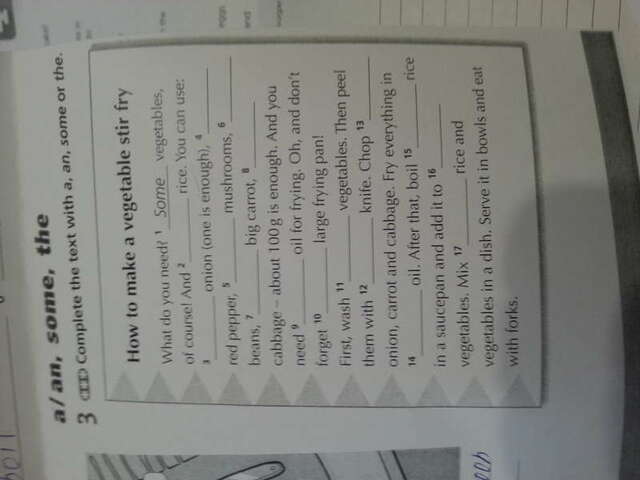 a/an, some, the
3 Complete the text with a, an, some or the.
How to make a vegetable stir fry
What do you need? 1 Some vegetables,
of course! And 2 ______ rice. You can use:
3 ______ onion (one is enough), 4 ______
red pepper, 5 ______ mushrooms, 6 ______
beans, 7 ______ big carrot, 8 ______
cabbage – about 100g is enough. And you
need 9 ______ oil for frying. Oh, and don't
forget 10 ______ large frying pan!
First, wash 11 ______ vegetables. Then peel
them with 12 ______ knife. Chop 13 ______
onion, carrot and cabbage. Fry everything in
14 ______ oil. After that, boil 15 ______ rice
in a saucepan and add it to 16 ______
vegetables. Mix 17 ______ rice and
vegetables in a dish. Serve it in bowls and eat
with forks.